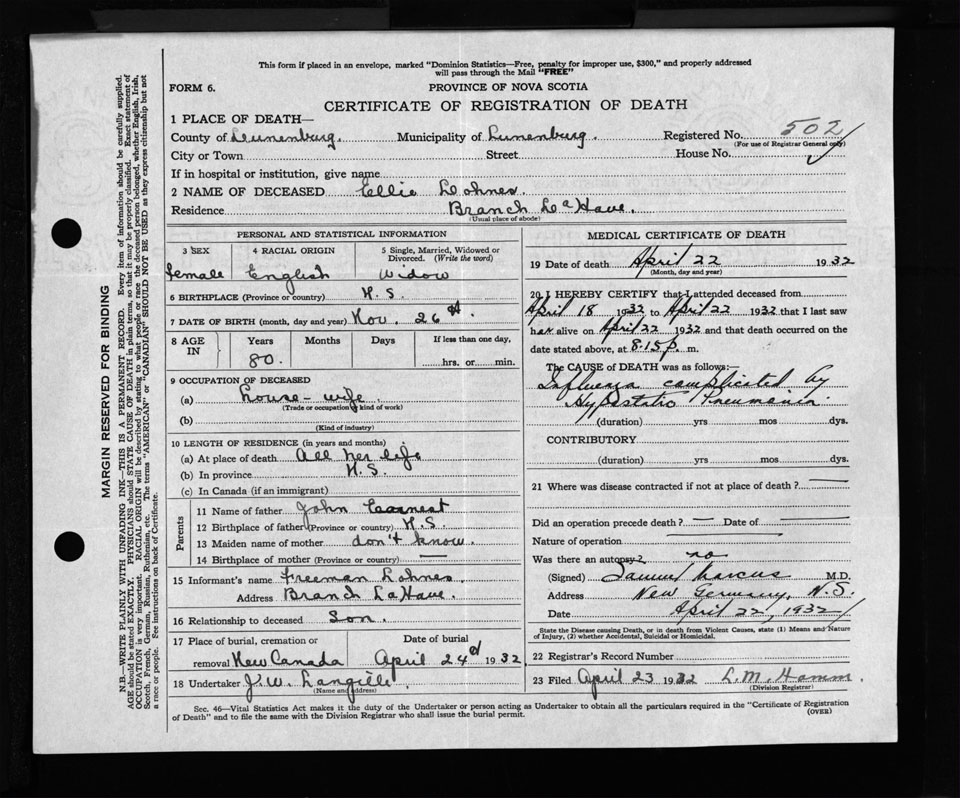 This form if placed in an envelope, marked "Dominion Statistics—Free, penalty for improper use, $300," and properly addressed
will pass through the Mail "FREE"
FORM 6.
PROVINCE OF NOVA SCOTIA
CERTIFICATE OF REGISTRATION OF DEATH
1 PLACE OF DEATH—
County of Lunenburg. Municipality of Lunenburg. Registered No. 502
(For use of Registrar General only)
City or Town Street House No.
If in hospital or institution, give name
2 NAME OF DECEASED Ellie Lohnes.
Residence Branch LaHave.
(Usual place of abode)
PERSONAL AND STATISTICAL INFORMATION
3 SEX 4 RACIAL ORIGIN 5 Single, Married, Widowed or
Divorced. (Write the word)
female English Widow
6 BIRTHPLACE (Province or country) N.S.
7 DATE OF BIRTH (month, day and year) Nov. 26
8 AGE IN Years Months Days If less than one day,
80. hrs. or min.
9 OCCUPATION OF DECEASED
(a) house-wife.
(Trade or occupation, kind of work)
(b)
(Kind of industry)
10 LENGTH OF RESIDENCE (in years and months)
(a) At place of death All her life
(b) In province N.S.
(c) In Canada (if an immigrant)
Parents
11 Name of father John
12 Birthplace of father (Province or country) N.S.
13 Maiden name of mother don't know.
14 Birthplace of mother (Province or country) —
15 Informant's name Freeman Lohnes.
Address Branch LaHave.
16 Relationship to deceased Son.
17 Place of burial, cremation or Date of burial
removal New Canada April 24 1932
18 Undertaker J.W. Langille.
(Name and address)
MEDICAL CERTIFICATE OF DEATH
19 Date of death April 22 1932
(Month, day and year)
20 I HEREBY CERTIFY that I attended deceased from
April 18 1932 to April 22 1932 that I last saw
her alive on April 22 1932 and that death occurred on
date stated above, at 8.15 p. m.
The CAUSE of DEATH was as follows:—
Influenza complicated by
Hypostatic Pneumonia.
(duration) yrs mos dys.
CONTRIBUTORY
(duration) yrs. mos. dys.
21 Where was disease contracted if not at place of death? —
Did an operation precede death? — Date of —
Nature of operation —
Was there an autopsy? no
(Signed) Samuel Marcus M.D.
Address New Germany, N.S.
Date April 22, 1932
State the Disease causing Death, or in death from Violent Causes, state (1) Means and Nature
of Injury, (2) whether Accidental, Suicidal or Homicidal.
22 Registrar's Record Number
23 Filed April 23 1932 L.M. Hamm
(Division Registrar)
Sec. 46—Vital Statistics Act makes it the duty of the Undertaker or person acting as Undertaker to obtain all the particulars required in the "Certificate of Registration
of Death" and to file the same with the Division Registrar who shall issue the burial permit.
(OVER)
MARGIN RESERVED FOR BINDING
N.B.—WRITE PLAINLY WITH UNFADING INK—THIS IS A PERMANENT RECORD. Every item of information should be carefully supplied.
AGE should be stated EXACTLY. PHYSICIANS should STATE CAUSE OF DEATH in plain terms, so that it may be properly classified. Exact statement of
OCCUPATION is very important. RACIAL ORIGIN will be described by stating to what people or race the deceased person belonged, whether English, Irish,
Scotch, French, German, Russian, Ruthenian, etc. The terms "AMERICAN" or "CANADIAN" SHOULD NOT BE USED as they express citizenship but not
a race or people. See instructions on back of Certificate.